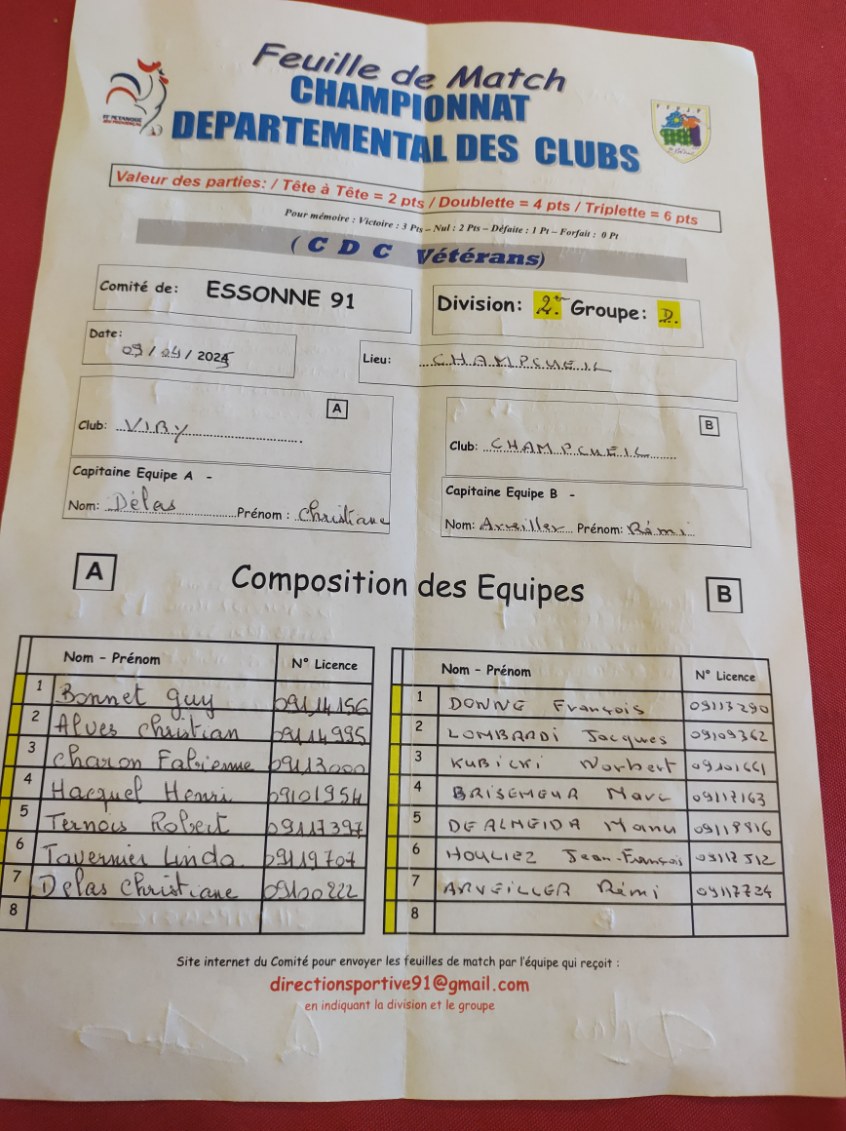 Feuille de Match
CHAMPIONNAT
DEPARTEMENTAL DES CLUBS
Valeur des parties: / Tête à Tête = 2 pts / Doublette = 4 pts / Triplette = 6 pts
Pour mémoire : Victoire : 3 Pts – Nul : 2 Pts – Défaite : 1 Pt – Forfait : 0 Pt
( C D C Vétérans)
Comité de: ESSONNE 91
Division: 2. Groupe: D.
Date: 09 / 04 / 2025
Lieu: CHAMPCUEIL
A
Club: VIRY
B
Club: CHAMPCUEIL
Capitaine Equipe A -
Nom: Délas Prénom : Christiane
Capitaine Equipe B -
Nom: Arveiller Prénom: Rémi
A Composition des Equipes B
Nom - Prénom N° Licence
1 Bonnet guy 09114156
2 Alves Christian 09114995
3 Charon Fabienne 09113000
4 Hacquel Henri 09101954
5 Ternois Robert 09117397
6 Tavernier Linda 09119707
7 Delas Christiane 09100222
8
Nom - Prénom N° Licence
1 DONNE François 09113290
2 LOMBARDI Jacques 09109362
3 KUBICKI Norbert 09101661
4 BRISEMEUR Marc 09117163
5 DE ALMEIDA Manu 09118816
6 HOULIEZ Jean-François 09112512
7 ARVEILLER Rémi 09117724
8
Site internet du Comité pour envoyer les feuilles de match par l'équipe qui reçoit :
directionsportive91@gmail.com
en indiquant la division et le groupe